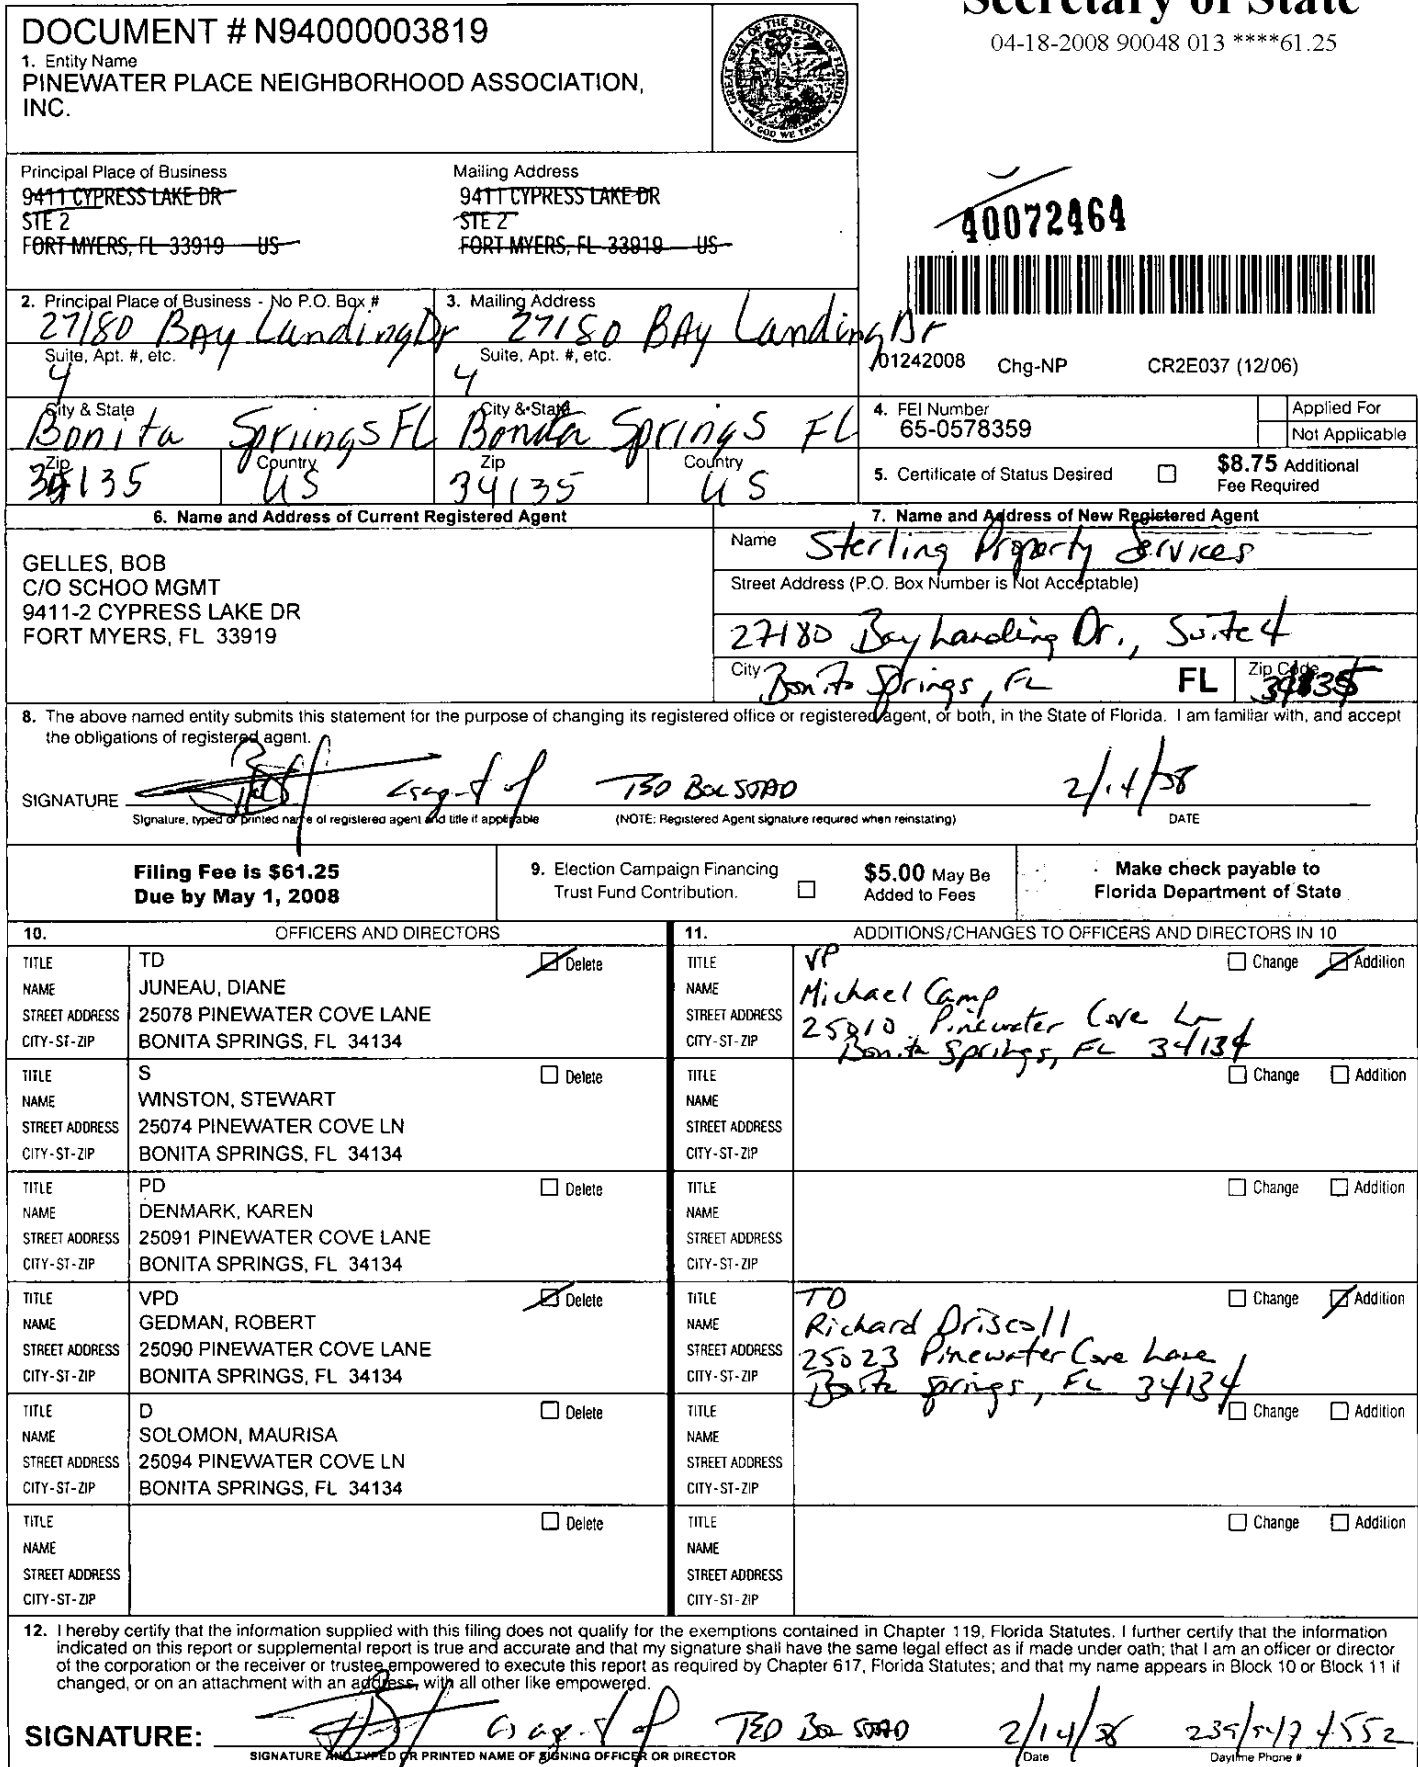 Secretary of State
04-18-2008 90048 013 ****61.25
DOCUMENT # N94000003819
1. Entity Name
PINEWATER PLACE NEIGHBORHOOD ASSOCIATION,
INC.
GREAT SEAL OF THE STATE OF FLORIDA
IN GOD WE TRUST
Principal Place of Business
9411 CYPRESS LAKE DR
STE 2
FORT MYERS, FL 33919 US
Mailing Address
9411 CYPRESS LAKE DR
STE 2
FORT MYERS, FL 33919 US
40072464
2. Principal Place of Business - No P.O. Box #
27180 BAy Landing Dr
Suite, Apt. #, etc.
4
City & State
Bonita Spriings FL
Zip
34135
Country
US
3. Mailing Address
27180 BAy Landing Dr
Suite, Apt. #, etc.
4
City & State
Bonita Springs FL
Zip
34135
Country
US
01242008 Chg-NP CR2E037 (12/06)
4. FEI Number
65-0578359
Applied For
Not Applicable
5. Certificate of Status Desired
$8.75 Additional
Fee Required
6. Name and Address of Current Registered Agent
GELLES, BOB
C/O SCHOO MGMT
9411-2 CYPRESS LAKE DR
FORT MYERS, FL 33919
7. Name and Address of New Registered Agent
Name Sterling Property Services
Street Address (P.O. Box Number is Not Acceptable)
27180 Bay Landing Dr., Suite 4
City Bonita Springs, FL FL Zip Code 34135
8. The above named entity submits this statement for the purpose of changing its registered office or registered agent, or both, in the State of Florida. I am familiar with, and accept
the obligations of registered agent.
SIGNATURE as agent of TED BOLSTAD 2/14/08
Signature, typed or printed name of registered agent and title if applicable (NOTE: Registered Agent signature required when reinstating) DATE
Filing Fee is $61.25
Due by May 1, 2008
9. Election Campaign Financing
Trust Fund Contribution.
$5.00 May Be
Added to Fees
Make check payable to
Florida Department of State
10. OFFICERS AND DIRECTORS
TITLE TD Delete
NAME JUNEAU, DIANE
STREET ADDRESS 25078 PINEWATER COVE LANE
CITY-ST-ZIP BONITA SPRINGS, FL 34134
TITLE S Delete
NAME WINSTON, STEWART
STREET ADDRESS 25074 PINEWATER COVE LN
CITY-ST-ZIP BONITA SPRINGS, FL 34134
TITLE PD Delete
NAME DENMARK, KAREN
STREET ADDRESS 25091 PINEWATER COVE LANE
CITY-ST-ZIP BONITA SPRINGS, FL 34134
TITLE VPD Delete
NAME GEDMAN, ROBERT
STREET ADDRESS 25090 PINEWATER COVE LANE
CITY-ST-ZIP BONITA SPRINGS, FL 34134
TITLE D Delete
NAME SOLOMON, MAURISA
STREET ADDRESS 25094 PINEWATER COVE LN
CITY-ST-ZIP BONITA SPRINGS, FL 34134
TITLE Delete
NAME
STREET ADDRESS
CITY-ST-ZIP
11. ADDITIONS/CHANGES TO OFFICERS AND DIRECTORS IN 10
TITLE VP Change Addition
NAME Michael Camp
STREET ADDRESS 25010 Pinewater Cove Ln
CITY-ST-ZIP Bonita Springs, FL 34134
TITLE Change Addition
NAME
STREET ADDRESS
CITY-ST-ZIP
TITLE Change Addition
NAME
STREET ADDRESS
CITY-ST-ZIP
TITLE TD Change Addition
NAME Richard Driscoll
STREET ADDRESS 25023 Pinewater Cove Lane
CITY-ST-ZIP Bonita Springs, FL 34134
TITLE Change Addition
NAME
STREET ADDRESS
CITY-ST-ZIP
TITLE Change Addition
NAME
STREET ADDRESS
CITY-ST-ZIP
12. I hereby certify that the information supplied with this filing does not qualify for the exemptions contained in Chapter 119, Florida Statutes. I further certify that the information
indicated on this report or supplemental report is true and accurate and that my signature shall have the same legal effect as if made under oath; that I am an officer or director
of the corporation or the receiver or trustee empowered to execute this report as required by Chapter 617, Florida Statutes; and that my name appears in Block 10 or Block 11 if
changed, or on an attachment with an address, with all other like empowered.
SIGNATURE: as agent of TED BOLSTAD 2/14/08 239/947 4552
SIGNATURE AND TYPED OR PRINTED NAME OF SIGNING OFFICER OR DIRECTOR Date Daytime Phone #